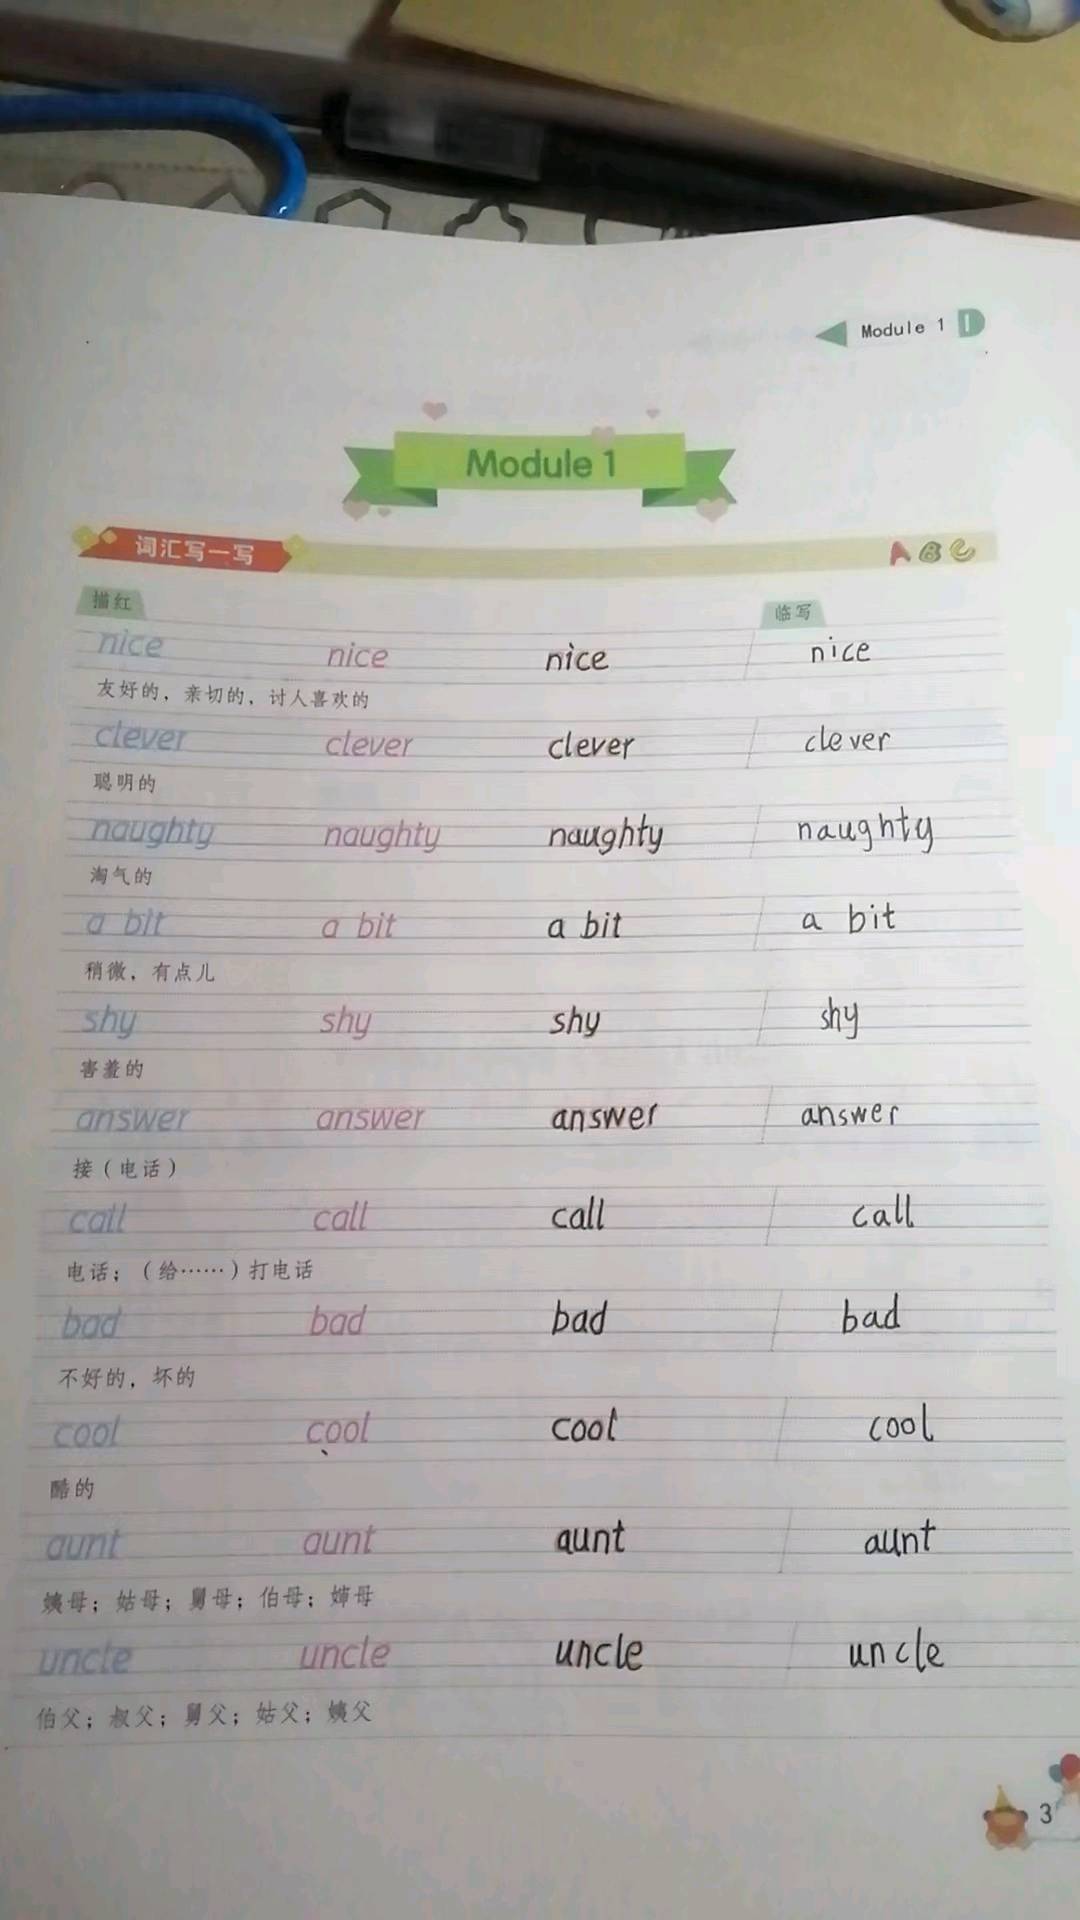 Module 1
Module 1
词汇写一写
A B C
描红 临写
nice nice nice nice
友好的，亲切的，讨人喜欢的
clever clever clever clever
聪明的
naughty naughty naughty naughty
淘气的
a bit a bit a bit a bit
稍微，有点儿
shy shy shy shy
害羞的
answer answer answer answer
接（电话）
call call call call
电话；（给……）打电话
bad bad bad bad
不好的，坏的
cool cool cool cool
酷的
aunt aunt aunt aunt
姨母；姑母；舅母；伯母；婶母
uncle uncle uncle uncle
伯父；叔父；舅父；姑父；姨父
3